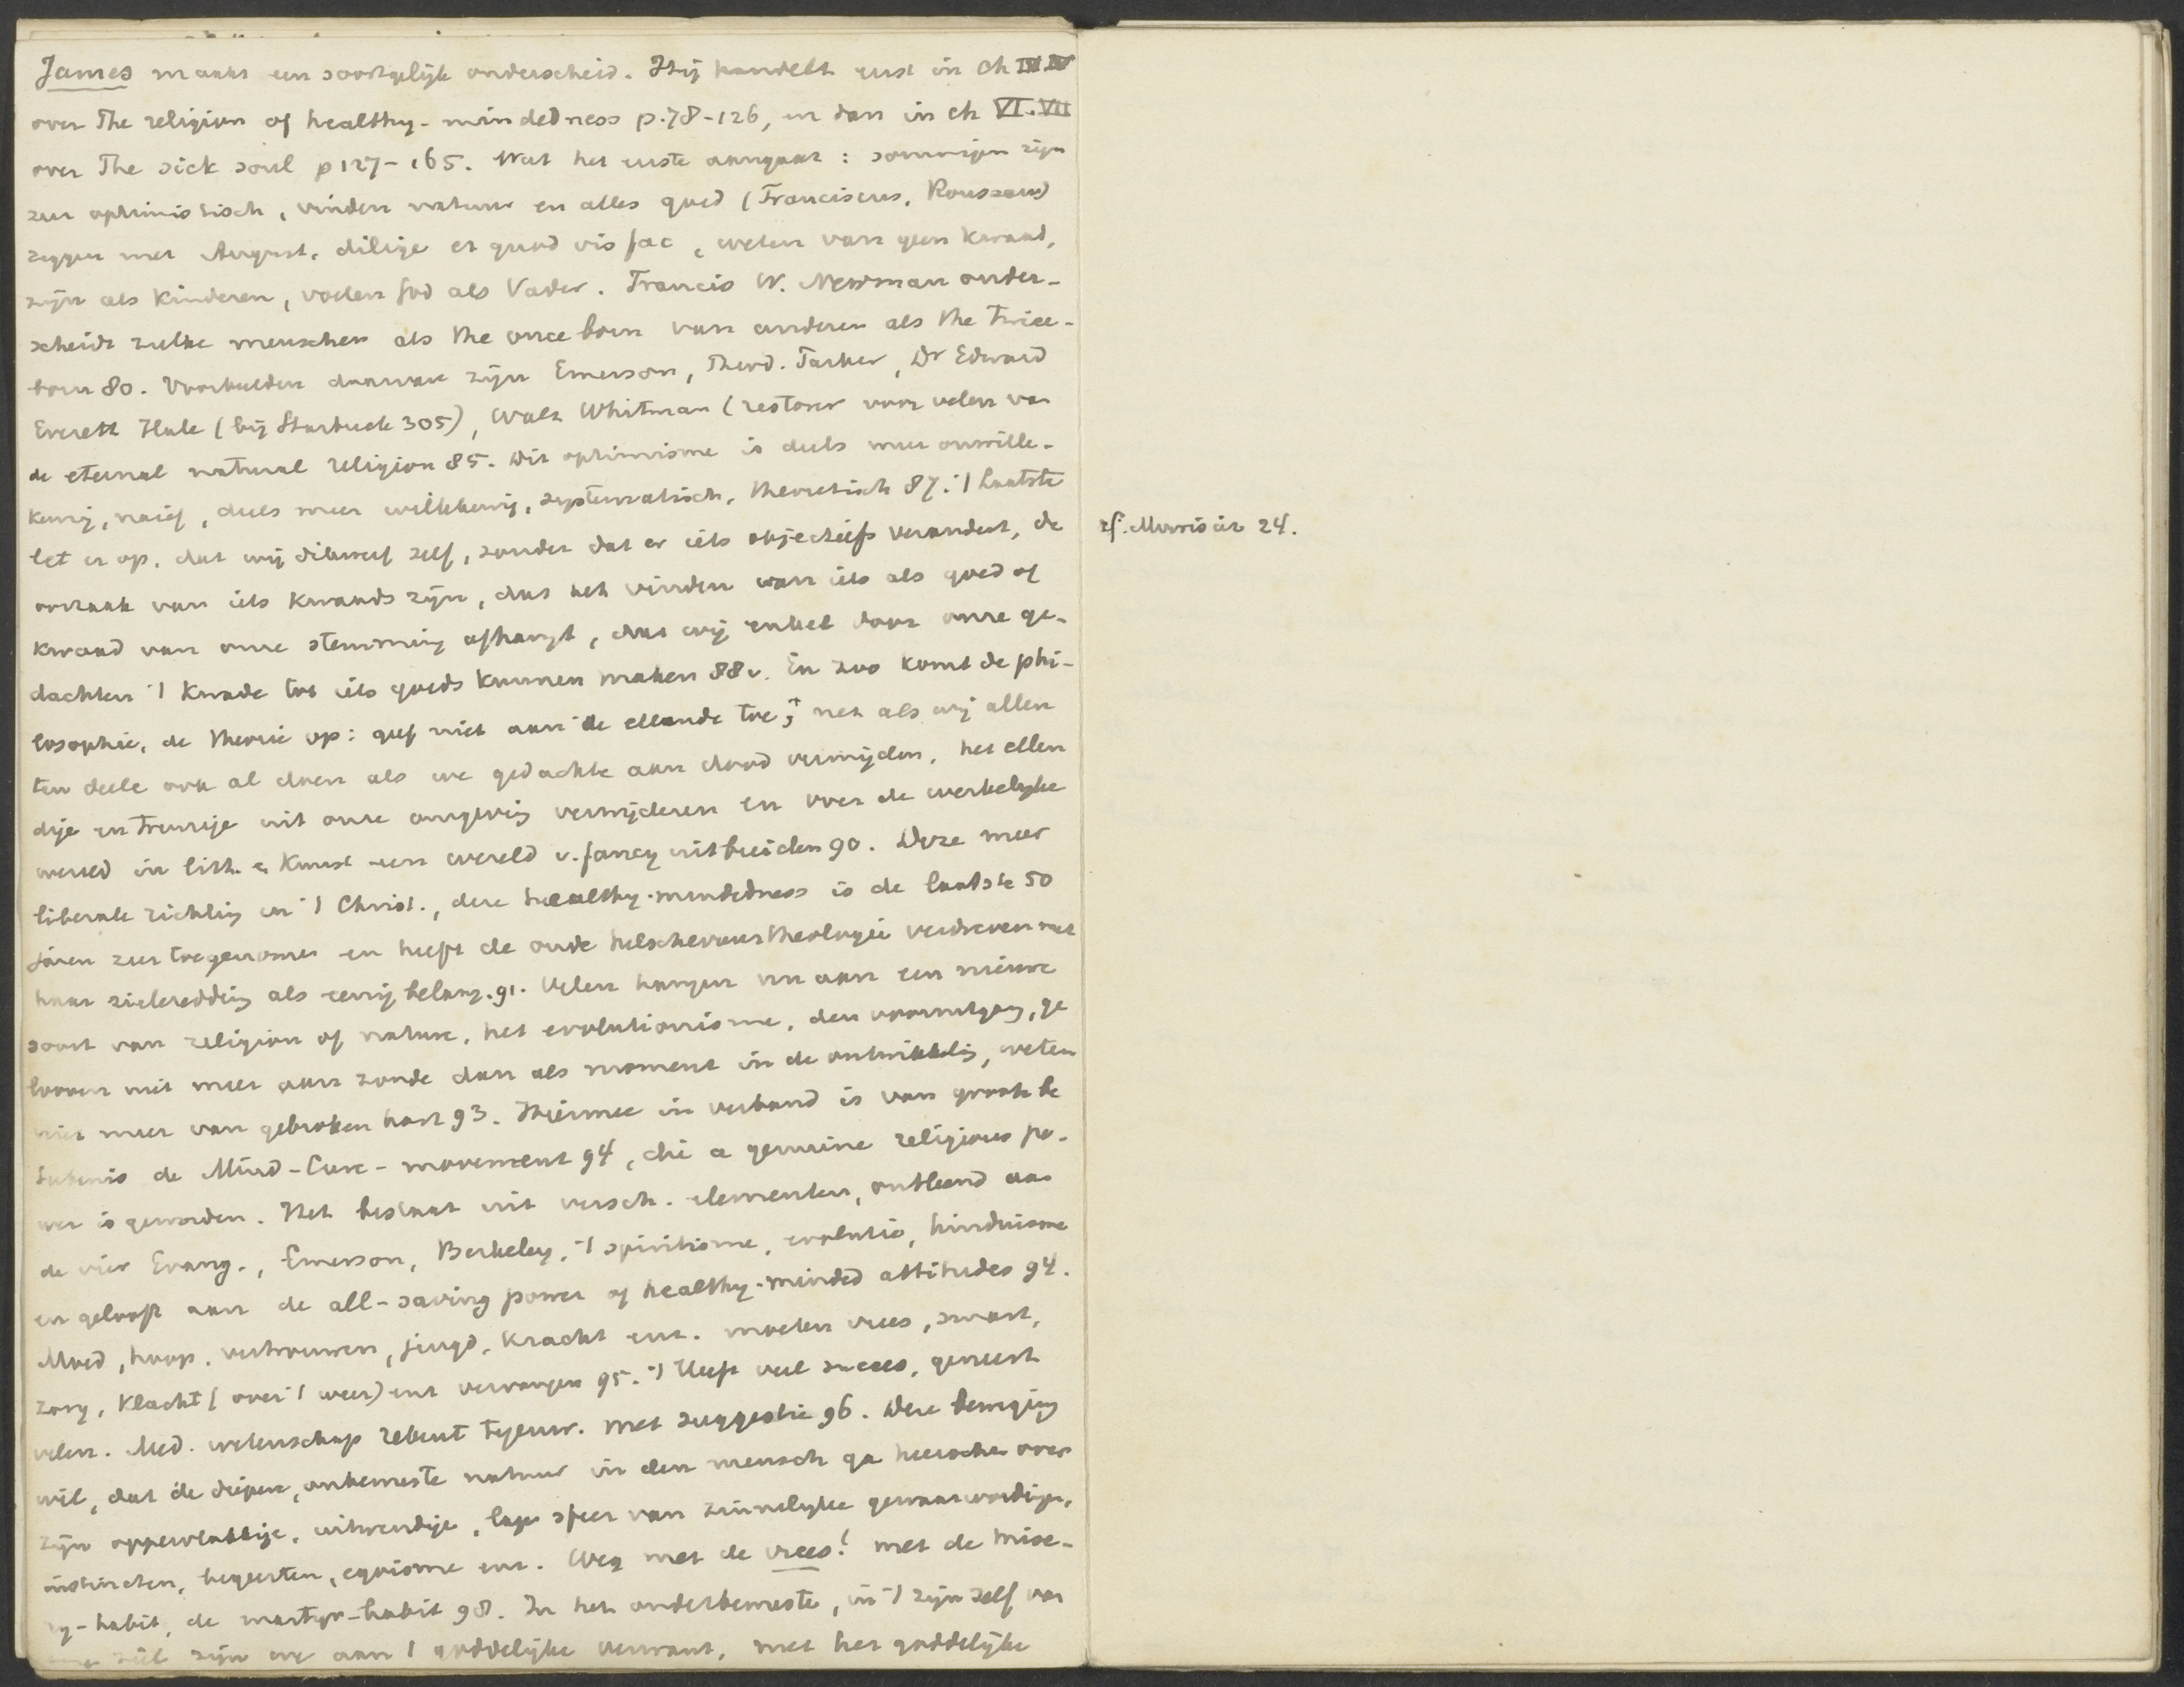 James maakt een soortgelijk onderscheid. Hij handelt eerst in ch IV.V
over The religion of healthy-mindedness p. 78-126, en dan in ch VI.VII
over The sick soul p 127-165. Wat het eerste aangaat: sommigen zijn
zeer optimistisch, vinden natuur en alles goed (Franciscus, Rousseau)
zeggen met August. dilige et quod vis fac, weten van geen kwaad,
zijn als kinderen, voelen God als Vader. Francis W. Newman onder-
scheidt zulke menschen als the once born van anderen als the twice-
born 80. Voorbeelden daarvan zijn Emerson, Theod. Parker, Dr Edward
Everett Hale (bij Starbuck 305), Walt Whitman (restorer voor velen van
de eternal natural religion 85. Dit optimisme is deels meer onwille-
keurig, naief, deels meer willekeurig, systematisch, theoretisch 87. 't Laatste
let er op, dat wij dikwerf zelf, zonder dat er iets objectiefs verandert, de
oorzaak van iets kwaads zijn, dat het vinden van iets als goed of
kwaad van onze stemming afhangt, dat wij enkel door onze ge-
dachten 't kwade tot iets goeds kunnen maken 88v. En zoo komt de phi-
losophie, de theorie op: geef niet aan de ellende toe; net als wij allen
ten deele ook al doen als we gedachte aan dood vermijden, het ellen
dige en treurige uit onze omgeving verwijderen en over de werkelijke
wereld in litt. en kunst een wereld v. fancy uitbreiden 90. Deze meer
liberale richting in 't Christ., deze healthy-mindedness is de laatste 50
jaren zeer toegenomen en heeft de oude helschevuurtheologie verdreven met
haar zieleredding als eenig belang. 91. Velen hangen nu aan een nieuwe
soort van religion of nature, het evolutionisme, den vooruitgang, ge
looven niet meer aan zonde dan als moment in de ontwikkeling, weten
niet meer van gebroken hart 93. Hiermee in verband is van groote be
teekenis de Mind-Cure-movement 94, die a genuine religious po-
wer is geworden. Het bestaat uit versch. elementen, ontleend aan
de vier Evang., Emerson, Berkeley, 't spiritisme, evolutie, hinduisme
en gelooft aan de all-saving power of healthy-minded attitudes 94.
Moed, hoop, vertrouwen, jeugd, kracht enz. moeten vrees, smart,
zorg, klacht (over 't weer) enz vervangen 95. 't Heeft veel succes, geneest
velen. Med. wetenschap rekent tegenw. met suggestie 96. Deze beweging
wil, dat de diepere, onbewuste natuur in den mensch ga heerschen over
zijn oppervlakkige, uitwendige, lage sfeer van zinnelijke gewaarwordingen,
instincten, begeerten, egoisme enz. Weg met de vrees! met de mise-
ry-habit, de martyr-habit 98. In het onderbewuste, in 't zijn zelf van
ziel zijn we aan 't goddelijke verwant, met het goddelijke
cf. 24.